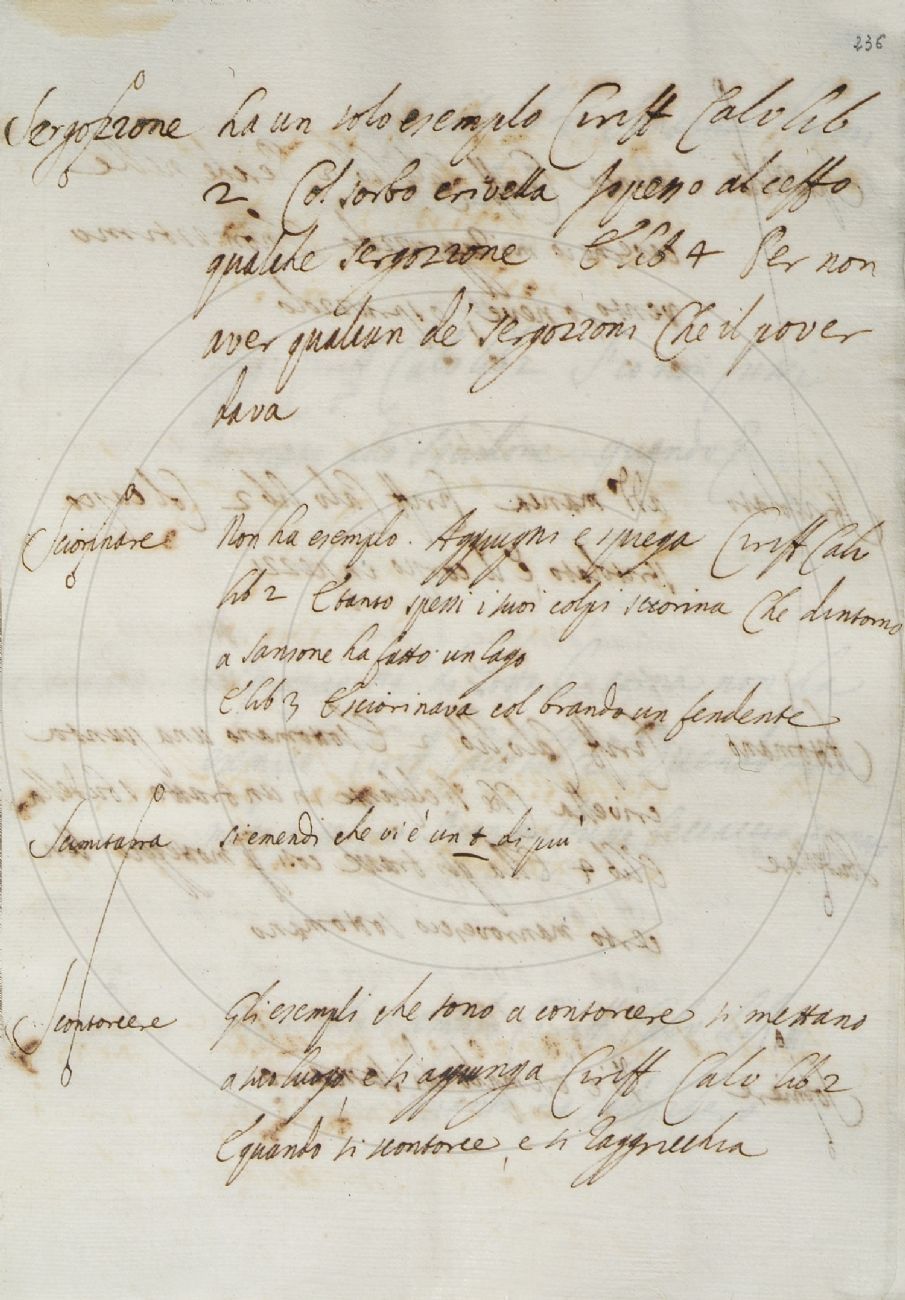 236
Sergozzone ha un solo esempio Ciriff Calv lib
2. Col sorbo e rivella spesso al ceffo
qualche sergozzone E lib 4 Per non
aver qualcun de' sergozzoni Che il pover
dava
Sciorinare Non ha esempio. Aggiugni e spiega Ciriff Calv
lib 2 E tanto spessi i suoi colpi sciorina Che dintorno
a Sansone ha fatto un lago
E lib 3 E sciorinava col brando un fendente
Scimitarra si emendi che vi è un t di più
Scontorcere Gli esempli che sono a contorcere si mettano
a suo luogo, e si aggiunga Ciriff Calv lib 2
E quando si scontorce, e si raggricchia